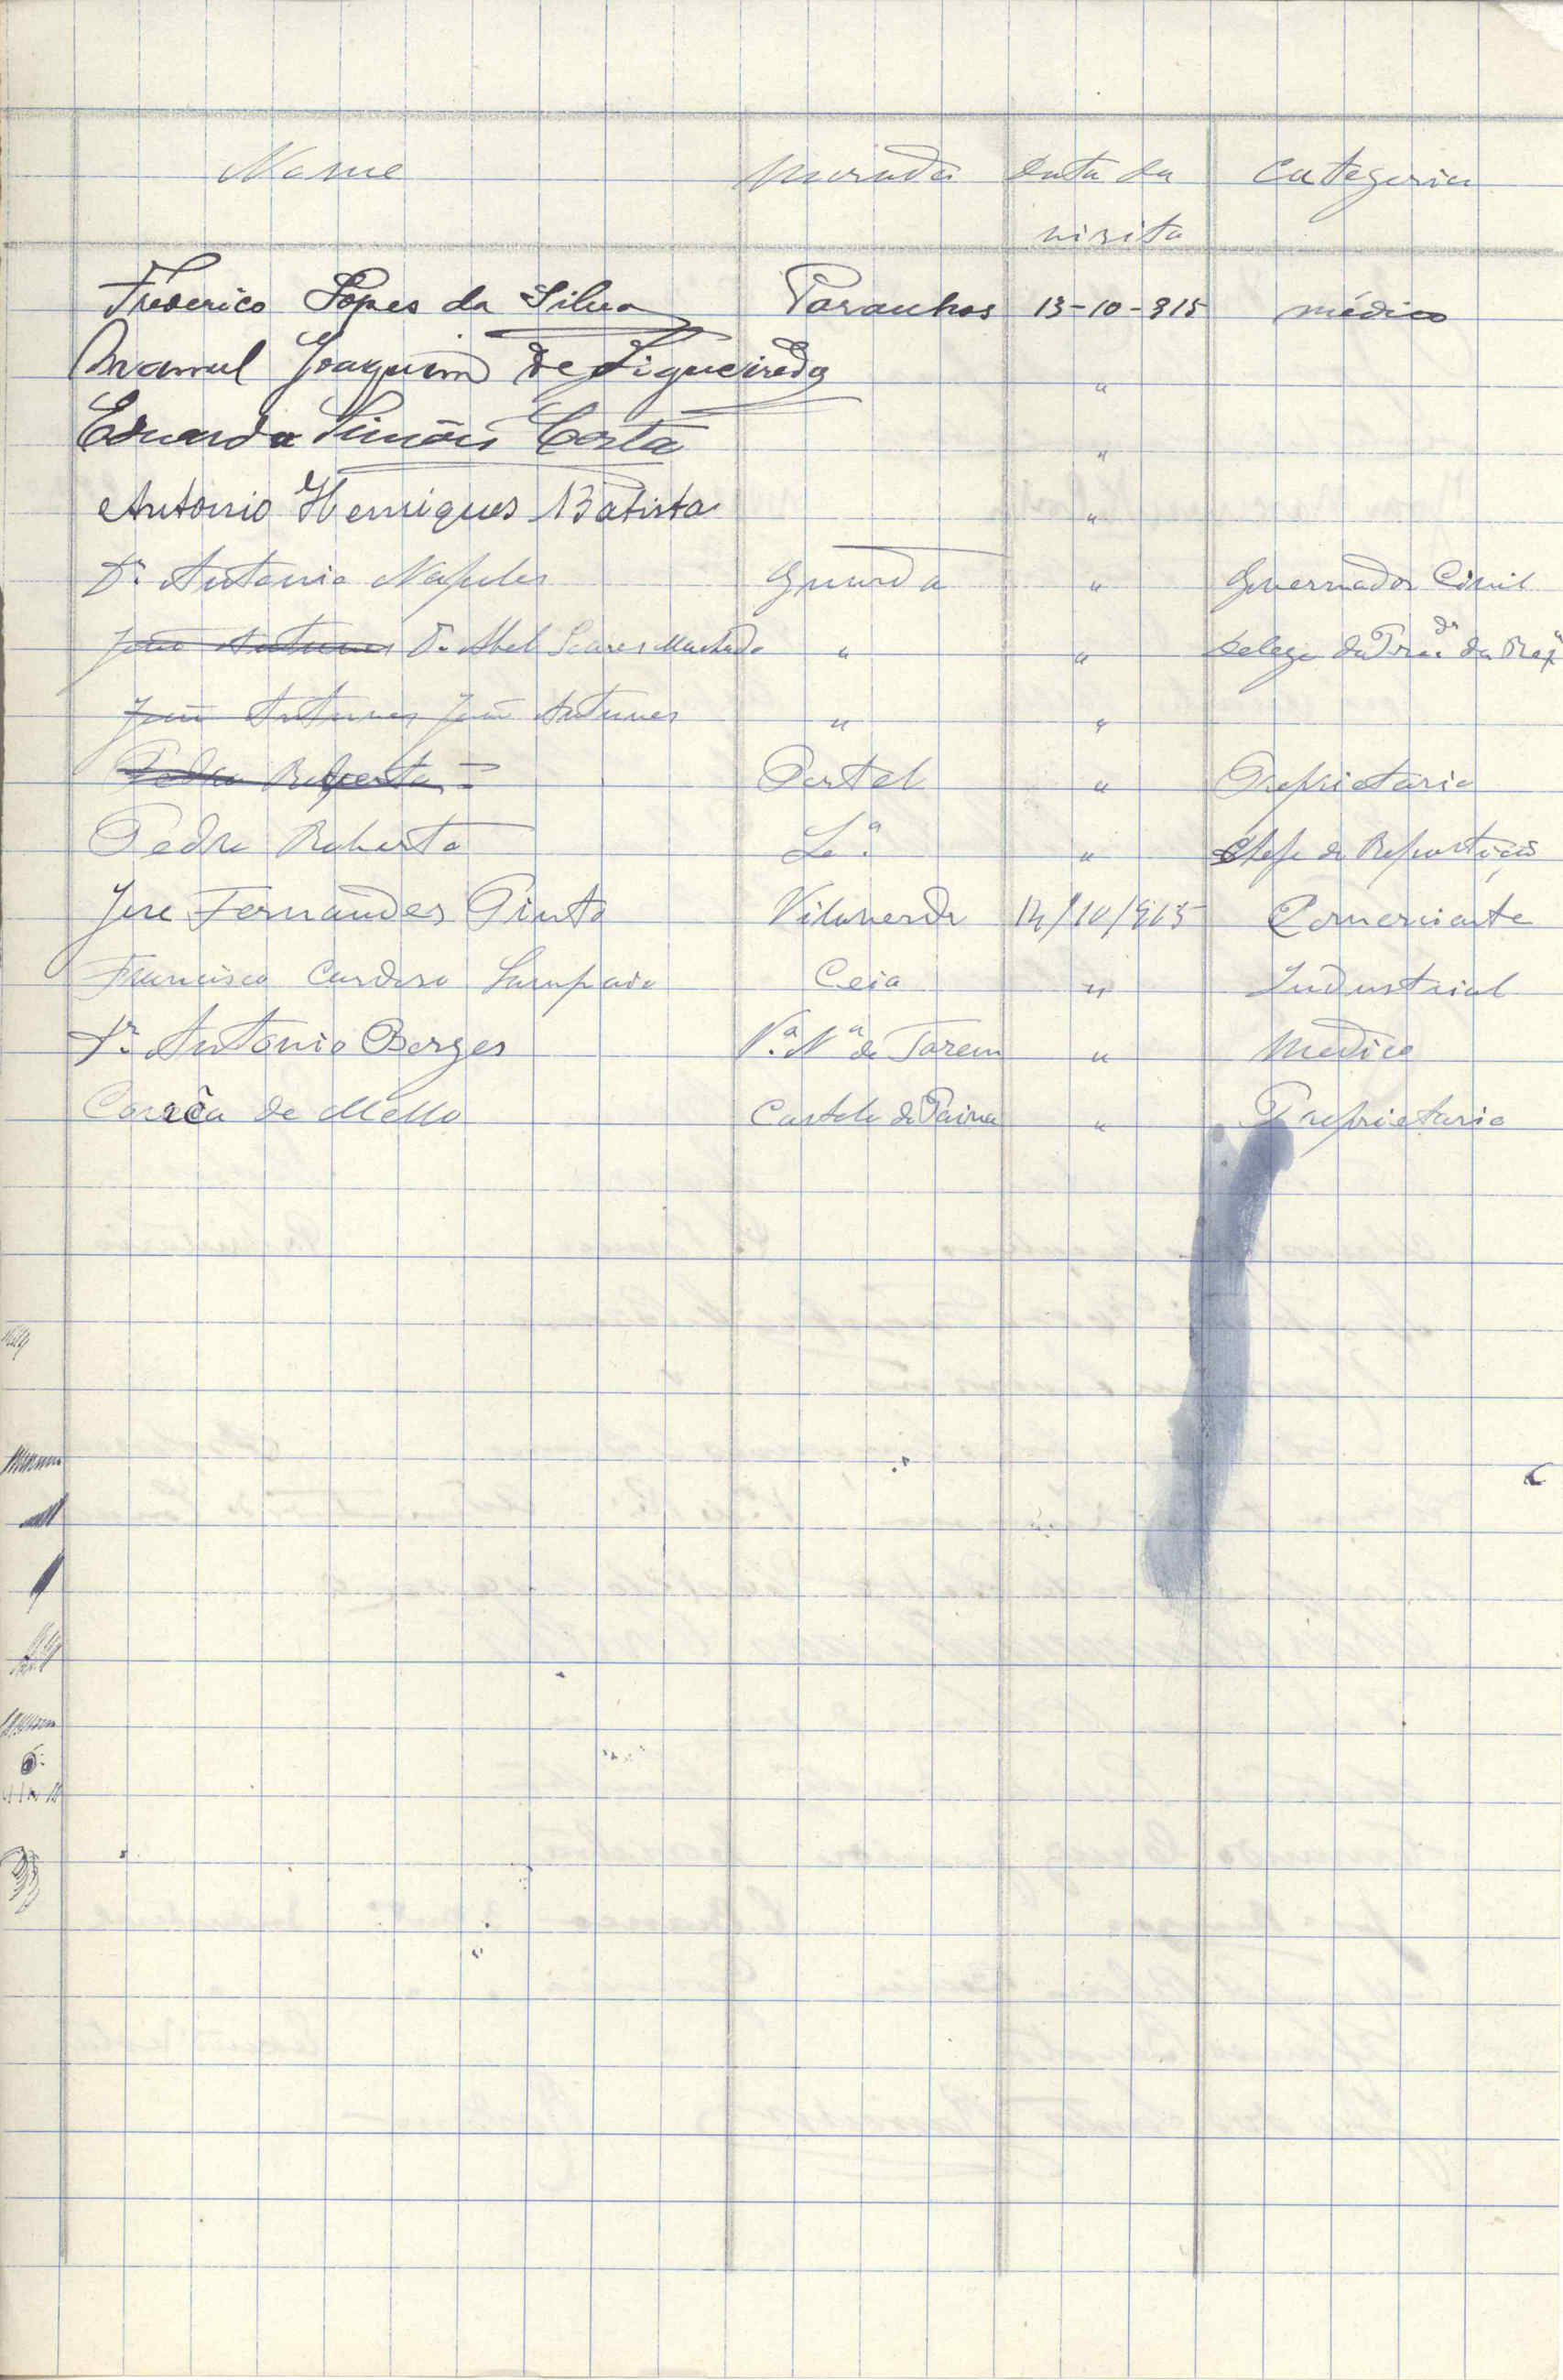 Nome Morada Data da Categoria
visita
Frederico Lopes da Silva Paranhos 13-10-915 médico
Manuel Joaquim de Figueiredo "
Eduardo Simões Costa "
Antonio Henriques Batista "
Dr. Antonio Napoles Guarda " Governador Civil
João Antunes Dr. Abel Soares Machado " " Deleg. da da
João Antunes João Antunes " "
Pedro Roberto Portel " Proprietario
Pedro Roberto " Chefe de Repartição
José Fernandes Pinto Vilaverde 14/10/915 Comerciante
Francisco Cardoso Sampaio Ceia " Industrial
Dr. Antonio Borges Vª Nª de Tarem " Medico
Corrêa de Mello Castelo de Paiva " Proprietario